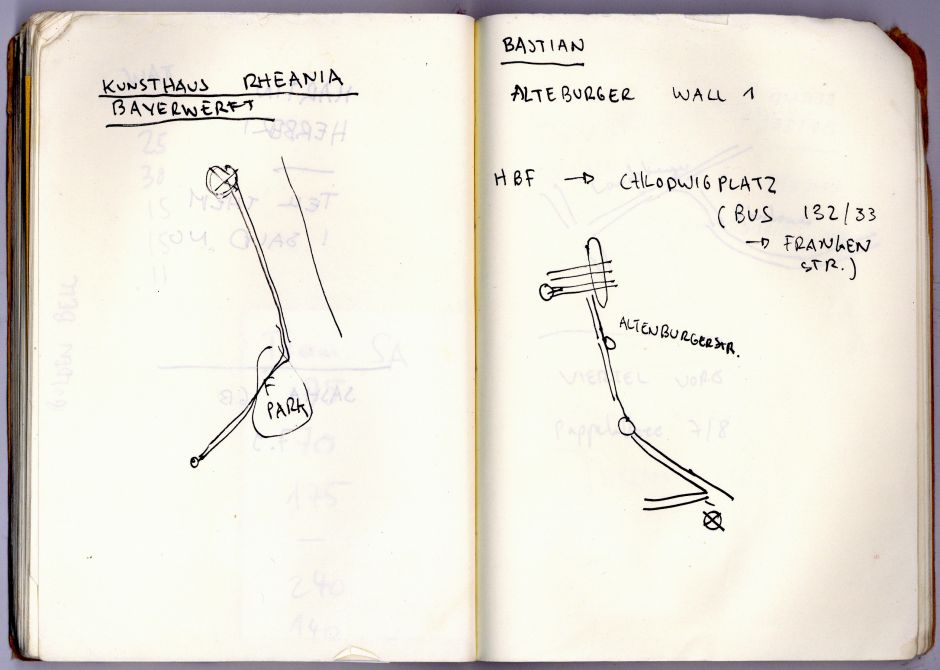 KUNSTHAUS RHEANIA
BAYERWERFT
F
PARK
BASTIAN
ALTEBURGER WALL 1
HBF → CHLODWIGPLATZ
(BUS 132/33
→ FRANKEN
STR.)
ALTENBURGERSTR.